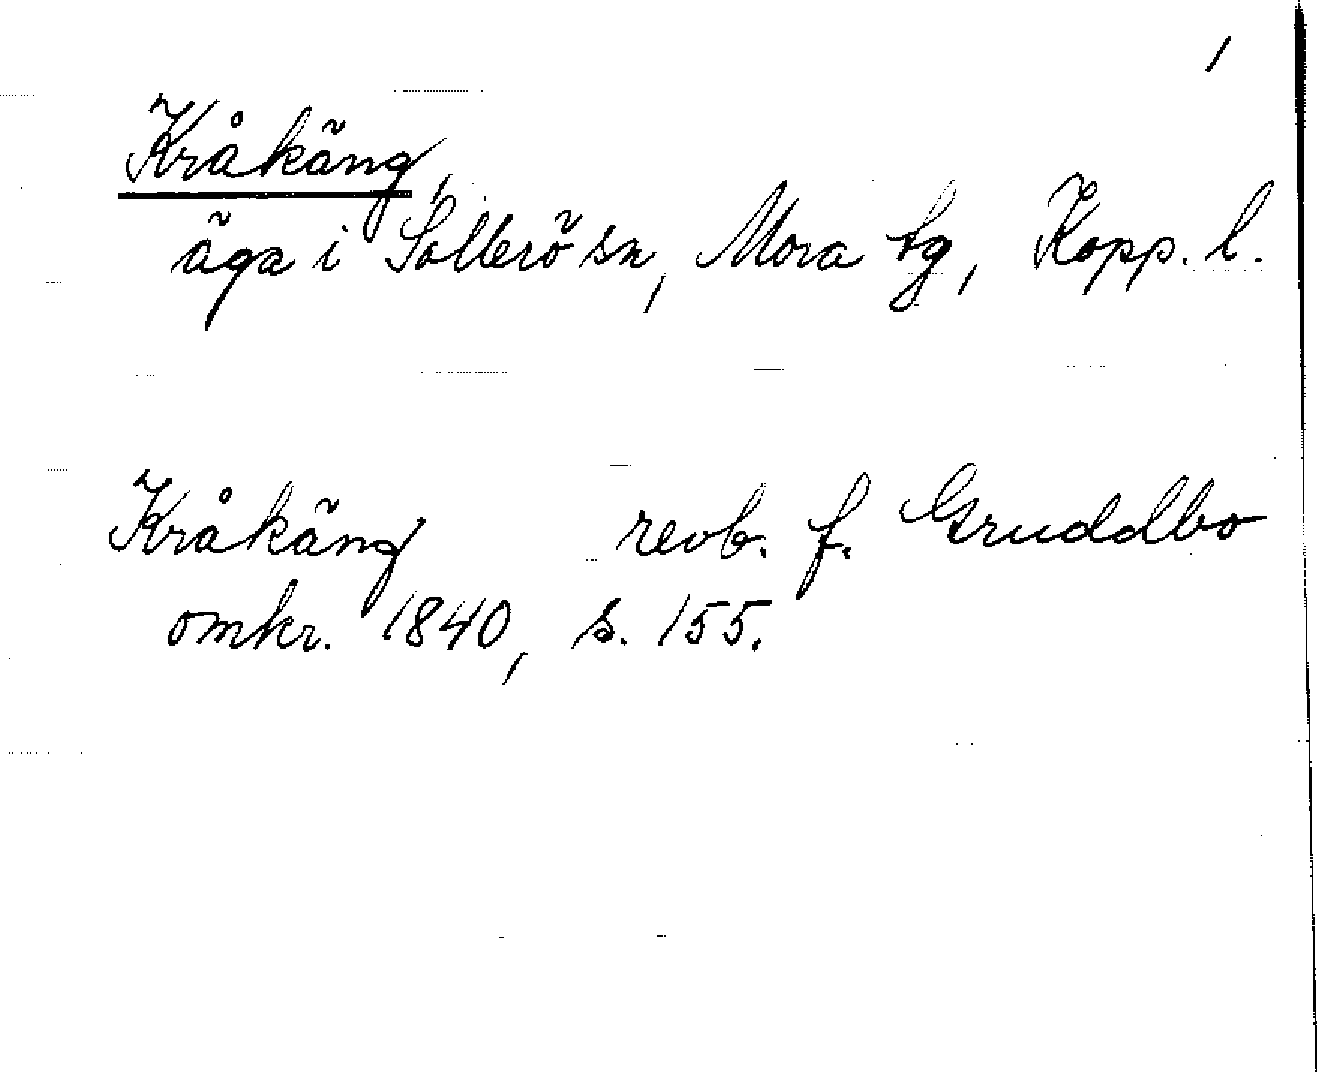 1
Kråkäng,
äga i Sollerö sn, Mora tg, Kopp. l.
Kråkäng revb. f. Gruddbo
omkr. 1840, s. 155.